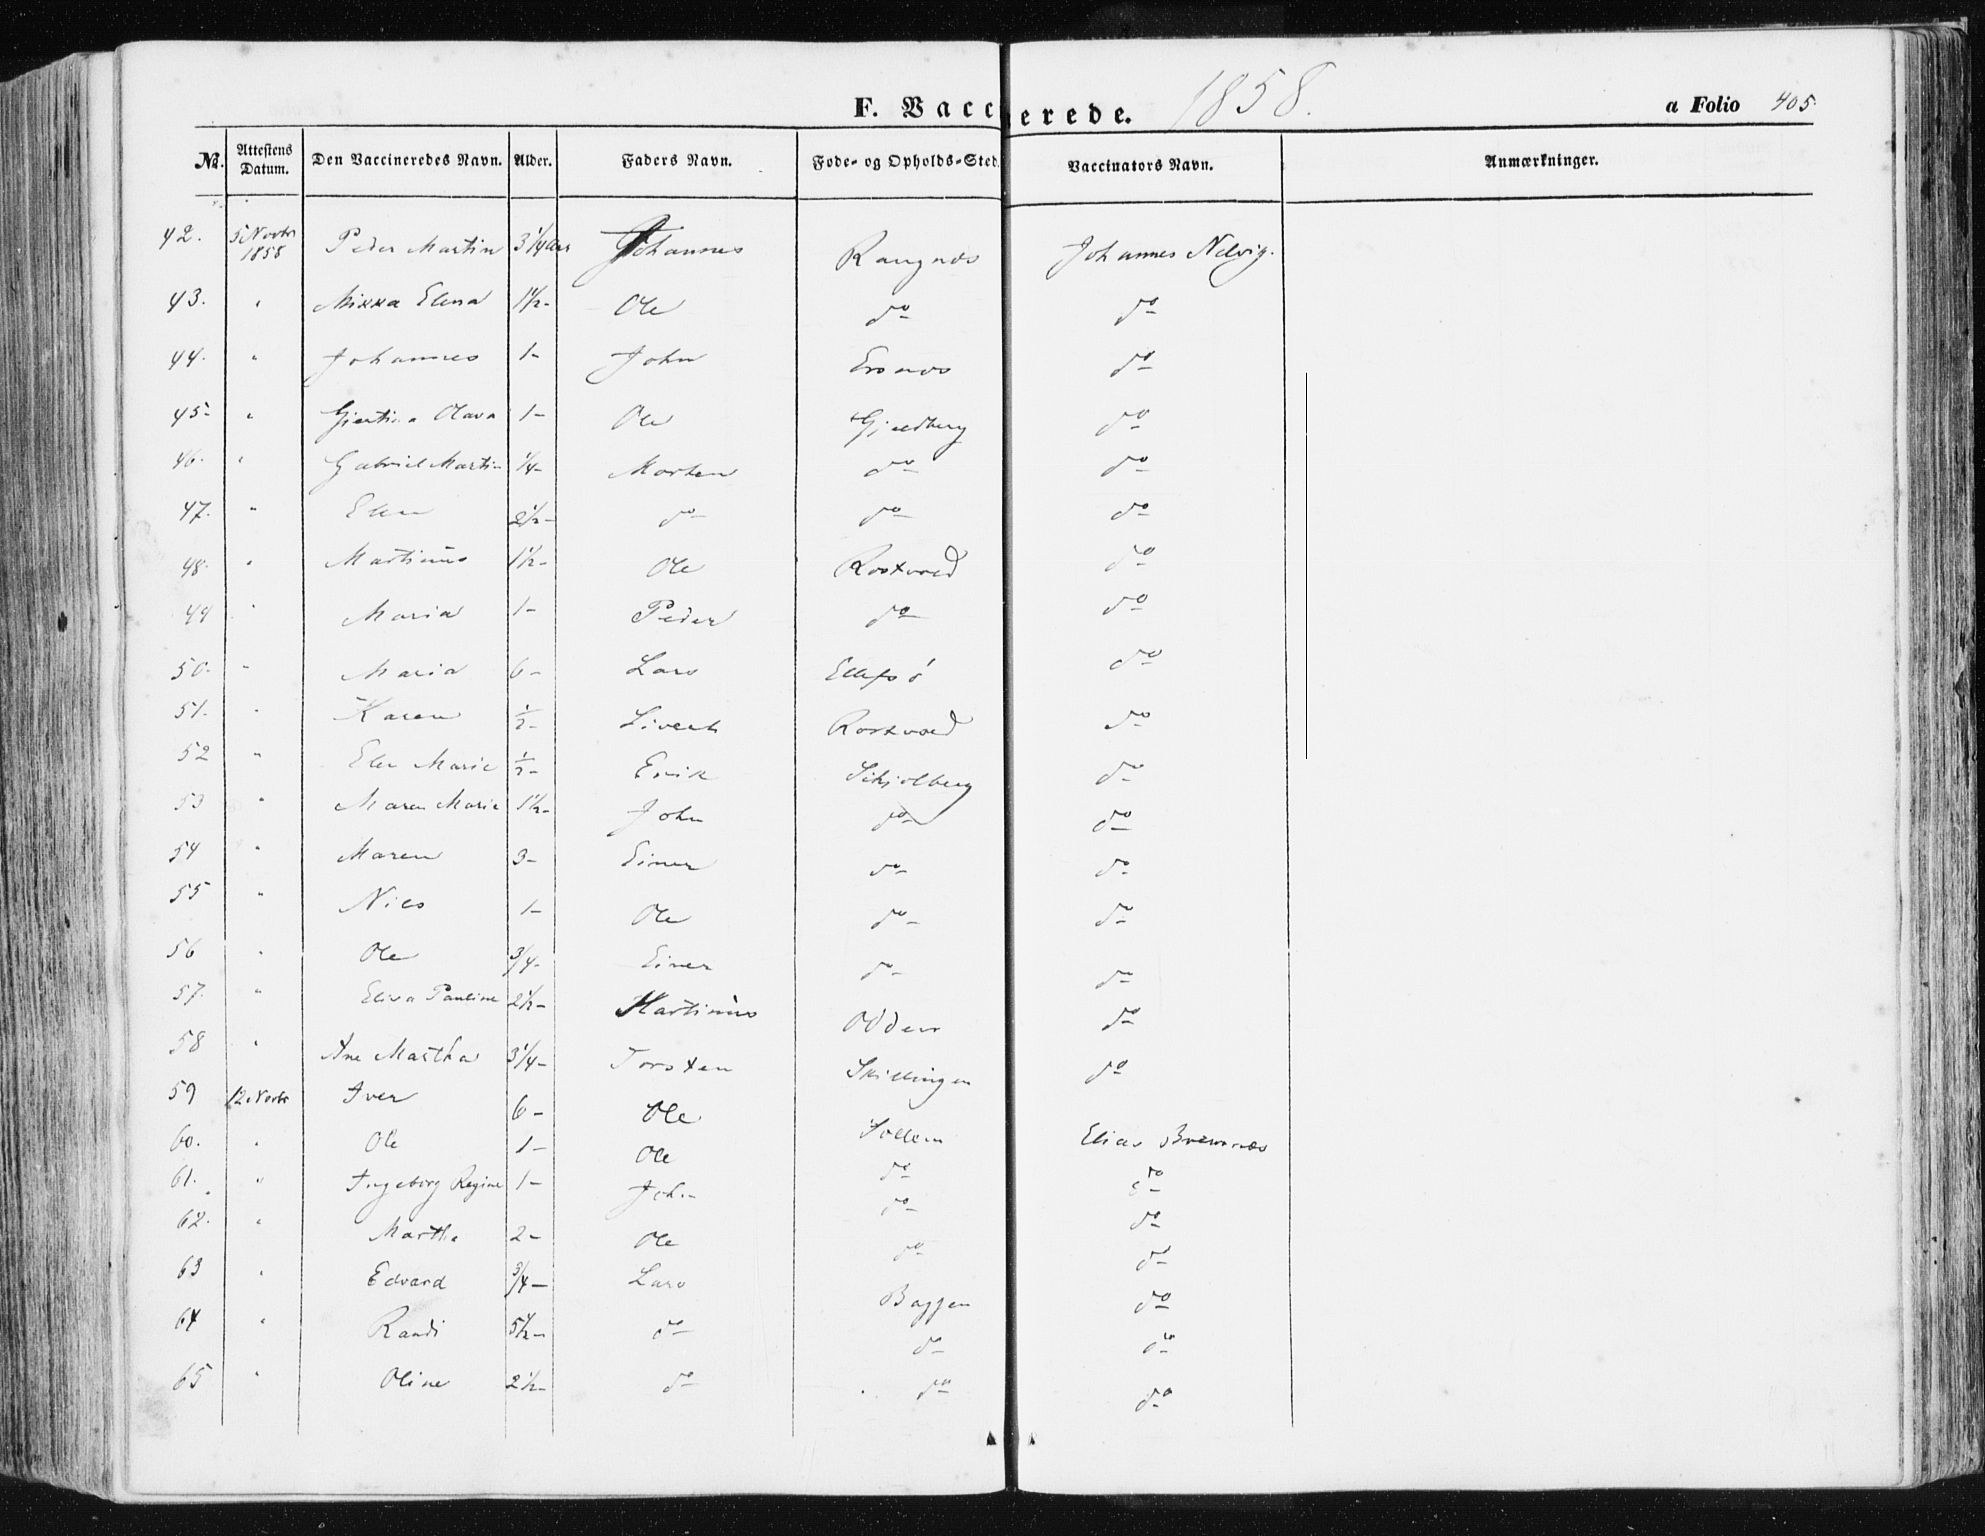 F. Vaccinerede. 1858. a Folio 405.
No. Attestens Datum. Den Vaccineredes Navn. Alder. Faders Navn. Føde- og Opholds-Sted. Vaccinators Navn. Anmærkninger.
42. 5 Novbr 1858 Peder Martin 3 1/4 Aar Johannes Rangnes Johannes Nelvig.
43. " Mikka Elena 1 1/2 - Ole do do
44. " Johannes 1 - John Ersnes do
45 - " Gjertina Olava 1 - Ole Gjeldberg do
46. " Gabriel Martin 1/4 - Morten do do
47. " Elen 2 1/2 - do do do
48. " Martinus 1 1/2 - Ole Rostvold do
49 " Maria 1 - Peder do do
50. " Maria 6 - Lars do
51. " Karen 1/2 - Sivert Rostvold do
52 " Elen Marie 1/2 - Erik Schjolberg do
53 " Maren Marie 1 1/2 - John do do
54 " Maren 3 - Einer do do
55 " Nils 1 - Ole do do
56 " Ole 3/4 - Einer do do
57. " Elisa Pauline 2 1/2 - Martinus Odden do
58 " Ane Martha 3 1/4 - Torsten Skillingen do
59 12 Novbr Iver 6 - Ole Sollem Elias Bremnes
60. " Ole 1 - Ole do do
61. " Ingeborg Regine 1 - John do do
62. " Martha 2 - Ole do do
63 " Edvard 3/4 - Lars Baggen do
64 " Randi 5 1/2 - do do do
65 " Oline 2 1/2 - do do do